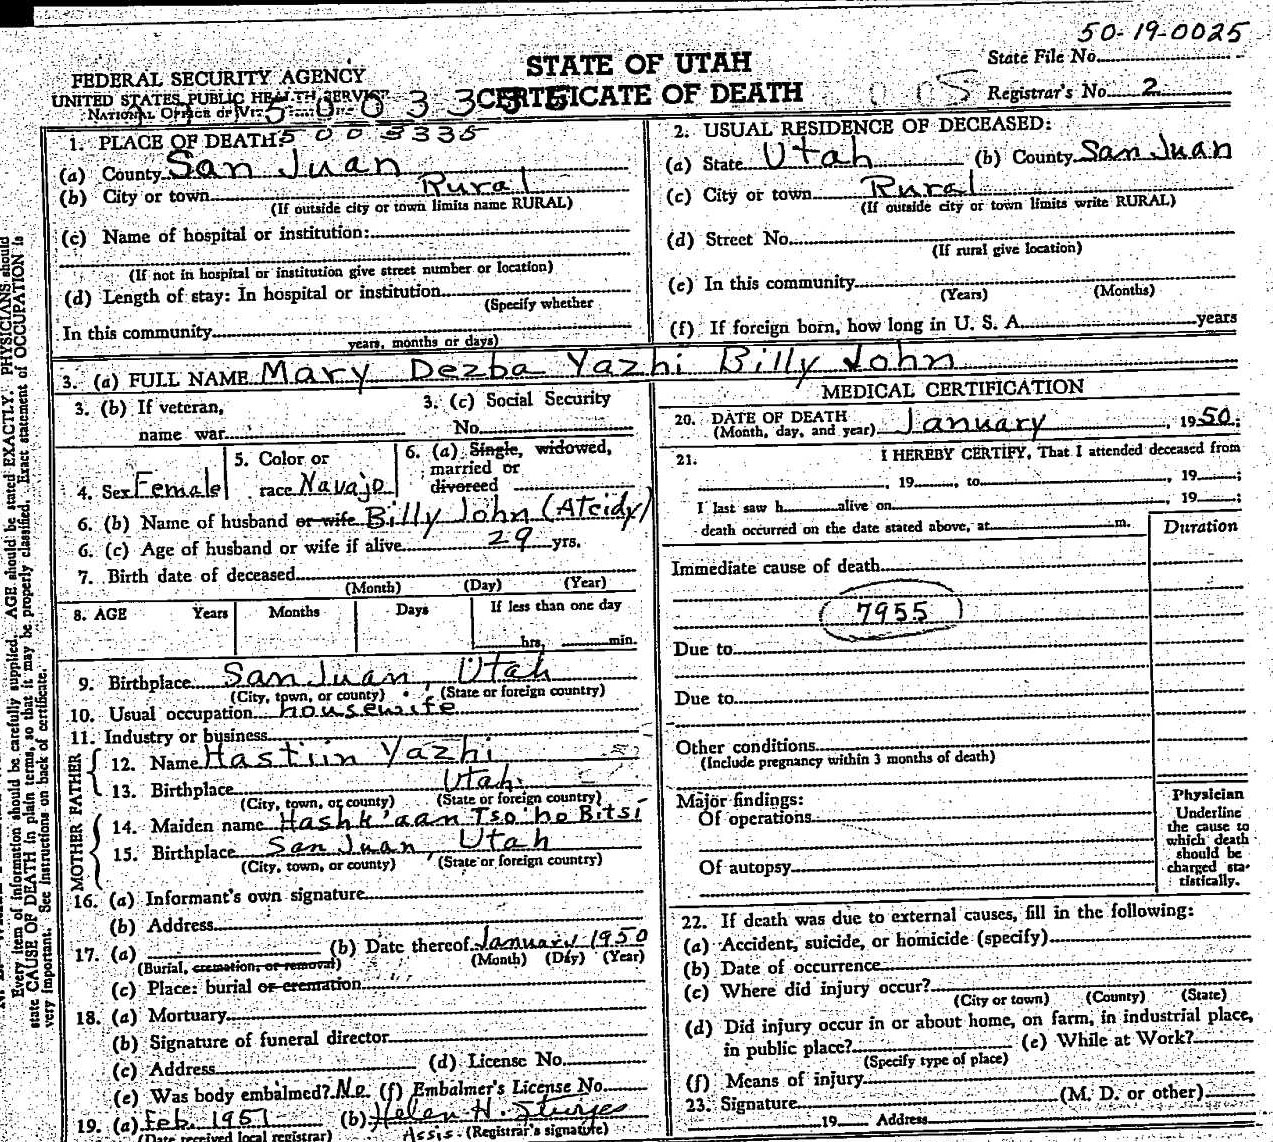 50-19-0025
State File No.
FEDERAL SECURITY AGENCY
UNITED STATES PUBLIC HEALTH SERVICE
NATIONAL OFFICE OF VI
STATE OF UTAH
CERTIFICATE OF DEATH
Registrar's No. 2
1. PLACE OF DEATH:
500 3335
(a) County San Juan
(b) City or town Rural
(If outside city or town limits name RURAL)
(c) Name of hospital or institution:
(If not in hospital or institution give street number or location)
(d) Length of stay: In hospital or institution
(Specify whether
In this community
years, months or days)
2. USUAL RESIDENCE OF DECEASED:
(a) State Utah (b) County San Juan
(c) City or town Rural
(If outside city or town limits write RURAL)
(d) Street No.
(If rural give location)
(e) In this community
(Years) (Months)
(f) If foreign born, how long in U. S. A. years
3. (a) FULL NAME Mary Dezba Yazhi Billy John
3. (b) If veteran,
name war
3. (c) Social Security
No.
4. Sex Female
5. Color or
race Navajo
6. (a) Single, widowed,
married or
divorced
6. (b) Name of husband or wife Billy John (Atcidy)
6. (c) Age of husband or wife if alive 29 yrs.
7. Birth date of deceased
(Month) (Day) (Year)
8. AGE Years Months Days If less than one day
hrs. min.
9. Birthplace San Juan, Utah
(City, town, or county) (State or foreign country)
10. Usual occupation housewife
11. Industry or business
FATHER
12. Name Hastiin Yazhi
13. Birthplace Utah
(City, town, or county) (State or foreign country)
MOTHER
14. Maiden name Hashk'aan Tso'ho Bitsi
15. Birthplace San Juan, Utah
(City, town, or county) (State or foreign country)
16. (a) Informant's own signature
(b) Address
17. (a) (b) Date thereof January 1950
(Burial, cremation, or removal) (Month) (Day) (Year)
(c) Place: burial or cremation
18. (a) Mortuary
(b) Signature of funeral director
(c) Address (d) License No.
(e) Was body embalmed? No (f) Embalmer's License No.
19. (a) Feb. 1951 (b) Helen H. Sturges
(Date received local registrar) Assis. (Registrar's signature)
MEDICAL CERTIFICATION
20. DATE OF DEATH
(Month, day, and year) January, 1950;
21. I HEREBY CERTIFY, That I attended deceased from
, 19 , to , 19 ;
I last saw h alive on , 19 ;
death occurred on the date stated above, at m.
Duration
Immediate cause of death
7955
Due to
Due to
Other conditions
(Include pregnancy within 3 months of death)
Major findings:
Of operations
Of autopsy
Physician
Underline
the cause to
which death
should be
charged sta-
tistically.
22. If death was due to external causes, fill in the following:
(a) Accident, suicide, or homicide (specify)
(b) Date of occurrence
(c) Where did injury occur?
(City or town) (County) (State)
(d) Did injury occur in or about home, on farm, in industrial place,
in public place? (e) While at Work?
(Specify type of place)
(f) Means of injury
23. Signature (M. D. or other)
19 Address
Every item of information should be carefully supplied. AGE should be stated EXACTLY. PHYSICIANS should
state CAUSE OF DEATH in plain terms, so that it may be properly classified. Exact statement of OCCUPATION is
very important. See instructions on back of certificate.